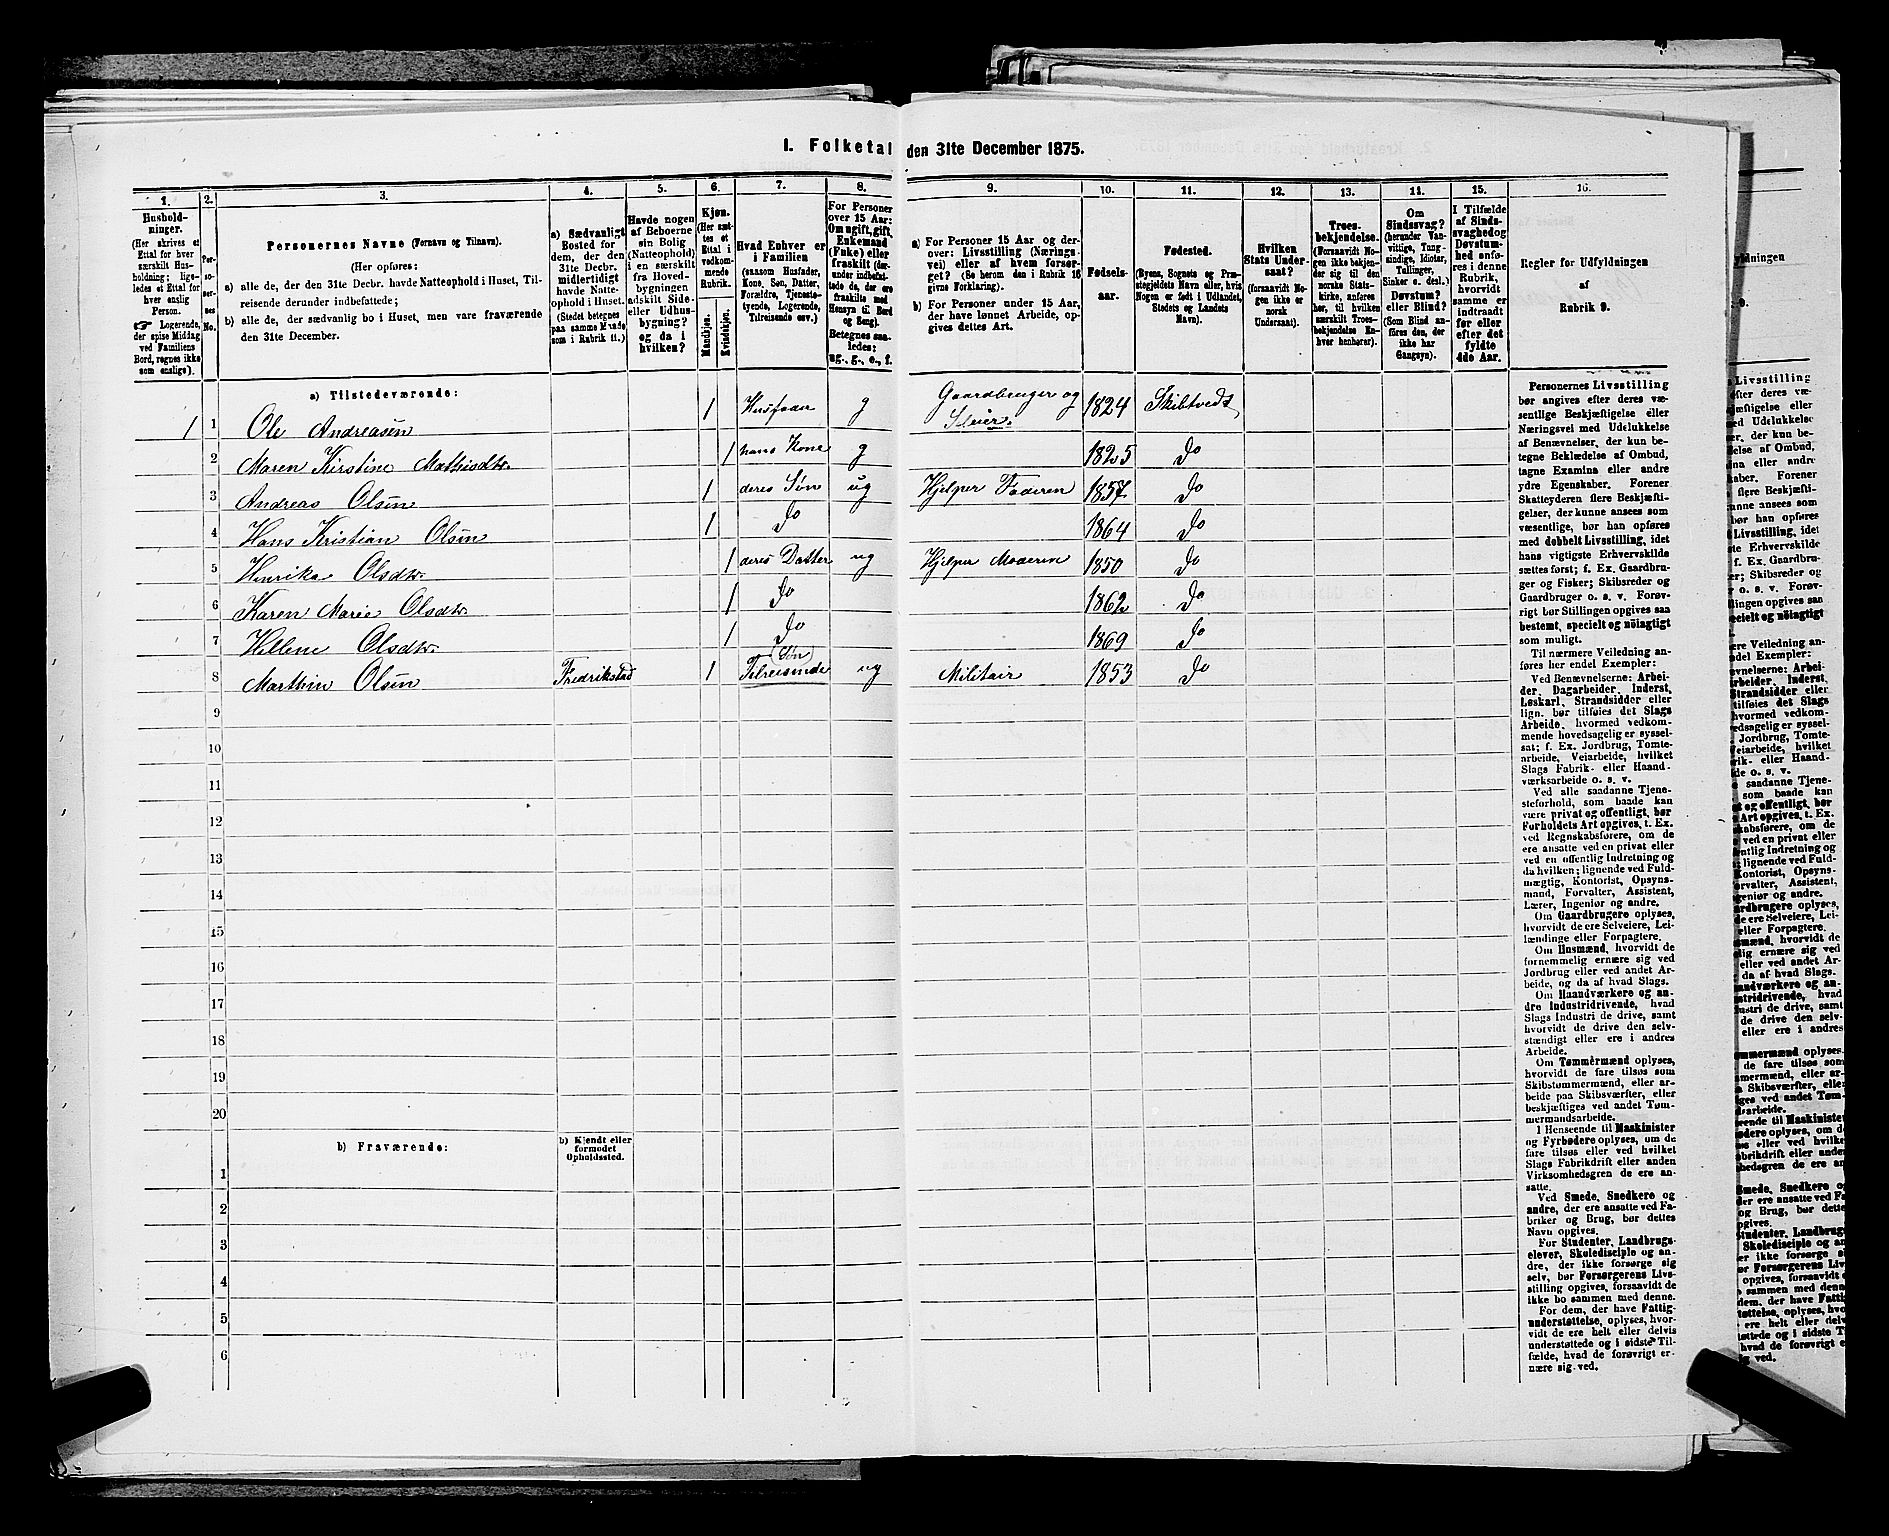 1. Folketal den 31te December 1875.
1. 2. 3. 4. 5. 6. 7. 8. 9. 10. 11. 12. 13. 14. 15. 16.
Husholdninger.
(Her skrives et Ettal for hver særskilt Husholdning; ligeledes et Ettal for hver enslig Person.
☞ Logerende, der spise Middag ved Familiens Bord, regnes ikke som enslige).
Personernes No.
Personernes Navne (Fornavn og Tilnavn).
(Her opføres:
a) alle de, der den 31te Decbr. havde Natteophold i Huset, Tilreisende derunder indbefattede;
b) alle de, der sædvanlig bo i Huset, men vare fraværende den 31te December.
a) Sædvanligt Bosted for dem, der den 31te Decbr. midlertidigt havde Natteophold i Huset. (Stedet betegnes paa samme Maade som i Rubrik 11.)
Havde nogen af Beboerne sin Bolig (Natteophold) i en særskilt fra Hovedbygningen adskilt Side- eller Udhusbygning? og da i hvilken?
Kjøn. (Her sættes et Ettal i vedkommende Rubrik.
Mandkjøn.
Kvindekjøn.
Hvad Enhver er i Familien
(saasom Husfader, Kone, Søn, Datter, Forældre, Tjenestetyende, Logerende, Tilreisende osv.)
For Personer over 15 Aar: Om ugift, gift, Enkemand (Enke) eller fraskilt (derunder indbefattede de, der ere fraskilte med Hensyn til Bord og Seng). Betegnes saaledes: ug., g., e., f.
a) For Personer 15 Aar og derover: Livsstilling (Næringsvei) eller af hvem forsørget? (Se herom den i Rubrik 16 givne Forklaring).
b) For Personer under 15 Aar, der have lønnet Arbeide, opgives dettes Art.
Fødselsaar.
Fødested.
(Byens, Sognets og Præstegjeldets Navn eller, hvis Nogen er født i Udlandet, Stedets og Landets Navn).
Hvilken Stats Undersaat?
(forsaavidt Nogen ikke er norsk Undersaat).
Troesbekjendelse.
(Forsaavidt Nogen ikke bekjender sig til den norske Statskirke, anføres her, til hvilken særskilt Troesbekjendelse Enhver henhører).
Om Sindssvag? (herunder Vanvittige, Tungsindige, Idioter, Tullinger, Sinker o. desl.) Døvstum? eller Blind? (Som Blind anføres den, der ikke har Gangsyn).
I Tilfælde af Sindssvaghed og Døvstumhed anføres i denne Rubrik, hvorvidt samme er indtraadt før eller efter det fyldte 4de Aar.
Regler for Udfyldningen af Rubrik 9.
a) Tilstedeværende:
1 1 Ole Andreasen 1 Husfader g Gaardbruger og Sleier. 1824 Skibtvedt
2 Maren Kirstine Mathisdtr. 1 hans Kone g 1825 Do
3 Andreas Olsen 1 deres Søn ug Hjelper Faderen 1857 Do
4 Hans Kristian Olsen 1 Do 1864 Do
5 Henrika Olsdtr. 1 deres Datter ug Hjelper Moderen 1850 Do
6 Karen Marie Olsdtr. 1 Do 1862 Do
7 Hellene Olsdtr. 1 Do 1869 Do
8 Marthin Olsen Fredrikstad 1 (Søn) Tilreisende ug Militair 1853 Do
9
10
11
12
13
14
15
16
17
18
19
20
b) Fraværende: b) Kjendt eller formodet Opholdssted.
1
2
3
4
5
6
Personernes Livsstilling
bør angives efter deres væ-
sentlige Beskjæftigelse eller
Næringsvei med Udelukkelse
af Benævnelser, der kun be-
tegne Beklædelse af Ombud,
tagne Examina eller andre
ydre Egenskaber. Forener
Skatteyderen flere Beskjæfti-
gelser, der kunne ansees som
væsentlige, bør han opføres
med dobbelt Livsstilling, idet
hans vigtigste Erhvervskilde
sættes først; f. Ex. Gaardbru-
ger og Fisker; Skibsreder og
Gaardbruger o. s. v. Forøv-
rigt bør Stillingen opgives saa
bestemt, specielt og nöiagtigt
som muligt.
Til nærmere Veiledning an-
føres her endel Exempler:
Ved Benævnelserne: Arbei-
der, Dagarbeider, Inderst,
Løskarl, Strandsidder eller
lign. bør tilføies det Slags
Arbeide, hvormed vedkom-
mende hovedsagelig er syssel-
sat; f. Ex. Jordbrug, Tomte-
arbeide, Veiarbeide, hvilket
Slags Fabrik- eller Haand-
værksarbeide o. s. v.
Ved alle saadanne Tjene-
steforhold, som baade kan
være privat og offentligt, bør
Forholdets Art opgives, t. Ex.
ved Regnskabsførere, om de
ere ansatte ved en privat eller
ved en offentlig Indretning og
da hvilken; lignende ved Fuld-
mægtig, Kontorist, Opsyns-
mand, Forvalter, Assistent,
Lærer, Ingeniør og andre.
Om Gaardbrugere oplyses,
hvorvidt de ere Selveiere, Lei-
lændinge eller Forpagtere.
Om Husmænd, hvorvidt de
fornemmelig ernære sig ved
Jordbrug eller ved andet Ar-
beide, og da af hvad Slags.
Om Haandværkere og an-
dre Industridrivende, hvad
Slags Industri de drive, samt
hvorvidt de drive den selv-
stændigt eller ere i andres
Arbeide.
Om Tømmermænd oplyses,
hvorvidt de fare tilsøs som
Skibstømmermænd, eller ar-
beide paa Skibsværfter, eller
beskjæftiges ved andet Tøm-
mermandsarbeide.
I Henseende til Maskinister
og Fyrbødere oplyses, om de
fare tilsøs eller ved hvilket
Slags Fabrikdrift eller anden
Virksomhedsgren de ere an-
satte.
Ved Smede, Snedkere og
andre, der ere ansatte ved Fa-
briker og Brug, bør dettes
Navn opgives.
For Studenter, Landbrugs-
elever, Skoledisciple og an-
dre, der ikke forsørge sig
selv, bør Forsørgerens Livs-
stilling opgives, forsaavidt de
ikke bo sammen med denne.
For dem, der have Fattig-
understøttelse, oplyses, hvor-
vidt de ere helt eller delvis
understøttede og i sidste Til-
fælde, hvad de forøvrigt er-
nære sig ved.